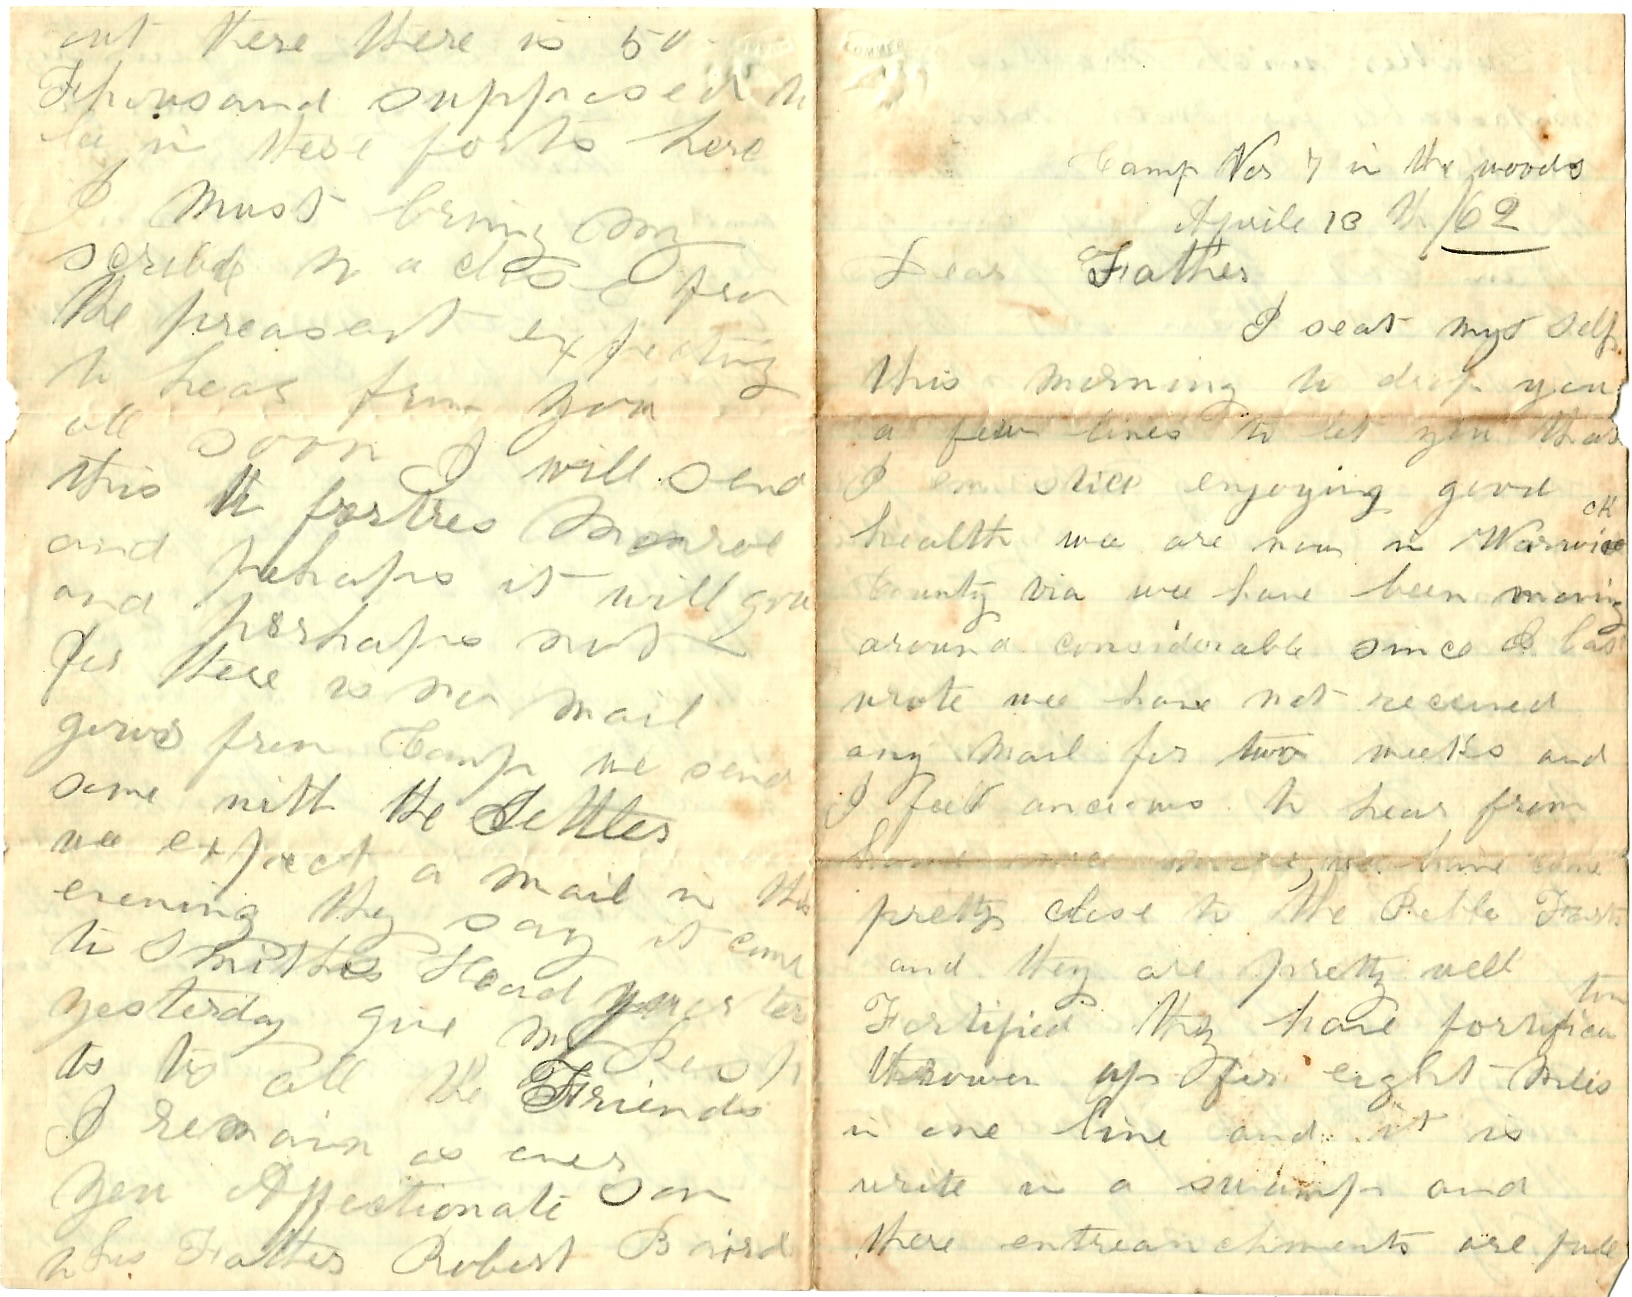 Camp No 7 in the woods
Aprile 13 th /62
Dear Father
I seat myst self
this morning to drop you
a few lines to let you that
I em still enjoying good
health wee are now in Warwick
County via wee have been moving
around considerable since I last
wrote wee have not received
any mail for two weeks and
I feel ancious to hear from
home once more, wee have come
pretty close to the Reble Forts
and they are pretty well
Fortified they have fortification
throwen up for eight Miles
in one line and it is
write in a swamp and
there entreanchments are full
out there there is 50
Thousand suppased to
be in these forts here
I must bring my
scribble to a close for
the preasant expecting
to hear from you
all soon I will send
this to fortres Monroe
and pehaps it will go
and perhaps not
for there is no mail
goes from Camp we send
some with the Settler
we expect a mail in this
evening they say it came
to Smiths Head quarters
yesterday give my Resp
ts to all the Friends
I remain as ever
you Affectionate Son
to his Father Robert Baird